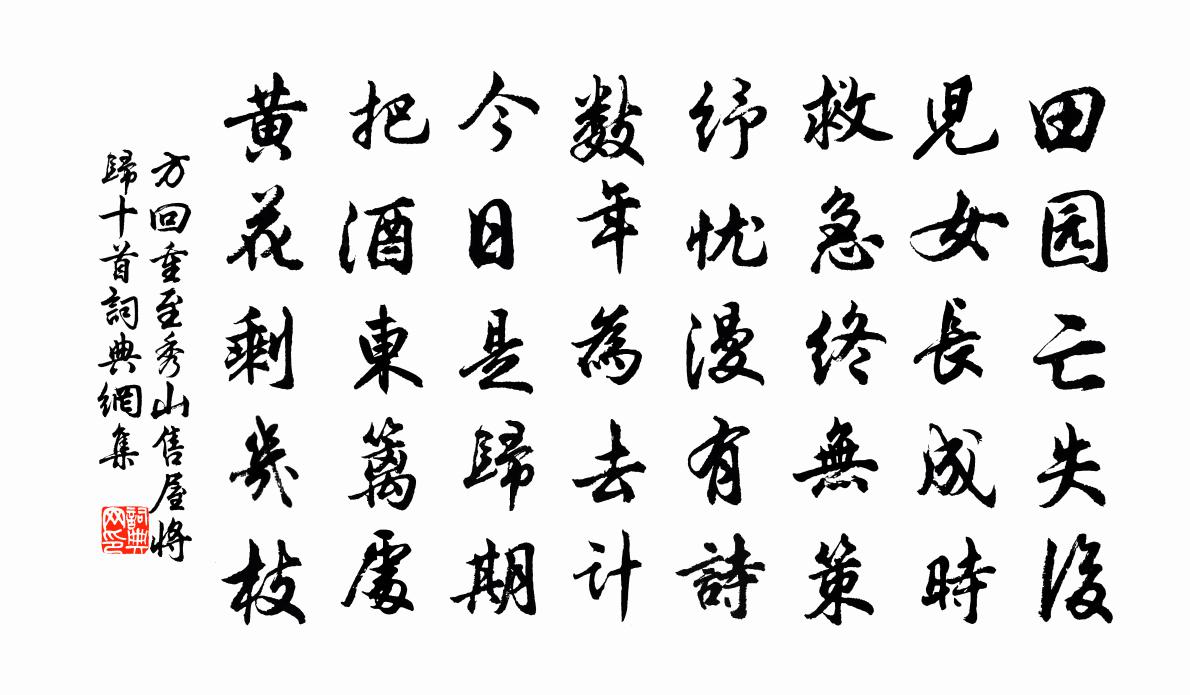 田园亡失後
児女長成時
救急終無策
纾忧漫有詩
数年為去计
今日是歸期
把酒東籬處
黄花剩幾枝
方回重至秀山售屋將
歸十首詞典網集
詞典网印